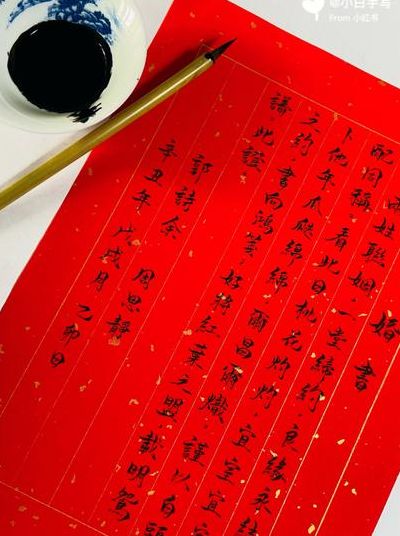 @小白手写
From 小红书
婚書
兩姓聯姻，一堂締約，良緣永結
配同稱。看此日桃花灼灼，宜室宜
卜他年瓜瓞綿綿，爾昌爾熾，謹以白頭
之約，書向鴻箋，好將紅葉之盟，載明鴛
譜。此證
郭詩余 周思靜
辛丑年 戊戌月 乙卯日